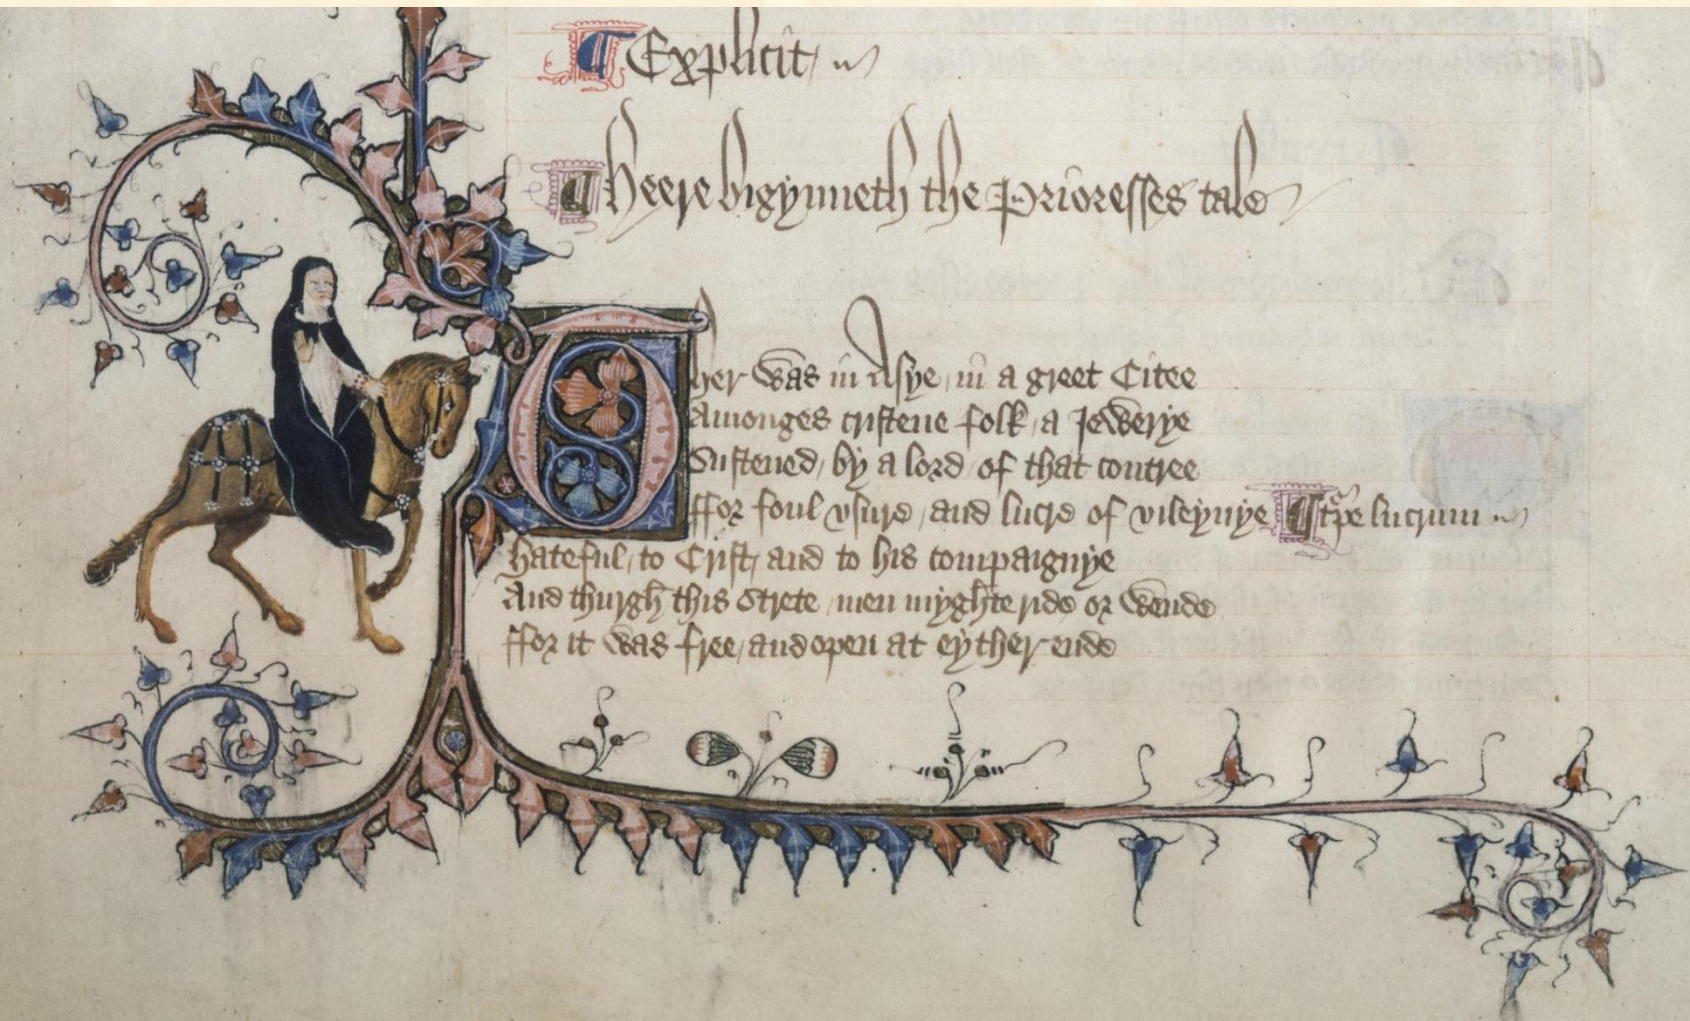 ¶ Explicit
¶ Heere bigynneth the Prioresses tale
Ther was in Asye in a greet Citee
Amonges cristene folk a Jewerye
Sustened by a lord of that contree
ffor foul vsure and lucre of vileynye ¶ turpe lucrum
hateful to Crist and to his compaignye
And thurgh this Strete men myghte ride or wende
ffor it was free and open at eyther ende